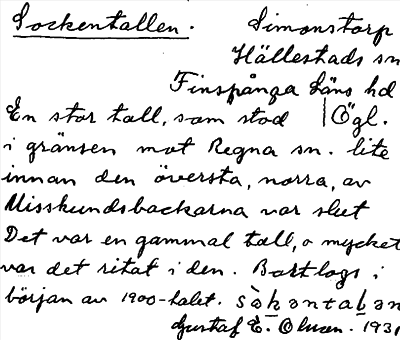 Sockentallen. Simonstorp
Hällestads sn
Finspånga läns hd
En stor tall, som stod | Ögl.
i gränsen mot Regna sn. lite
innan den översta, norra, av
Misskundsbackarna var slut
Det var en gammal tall, o mycket
var det ritat i den. Bortlogs i
början av 1900-talet.
Gustaf E. Olsson. 1931